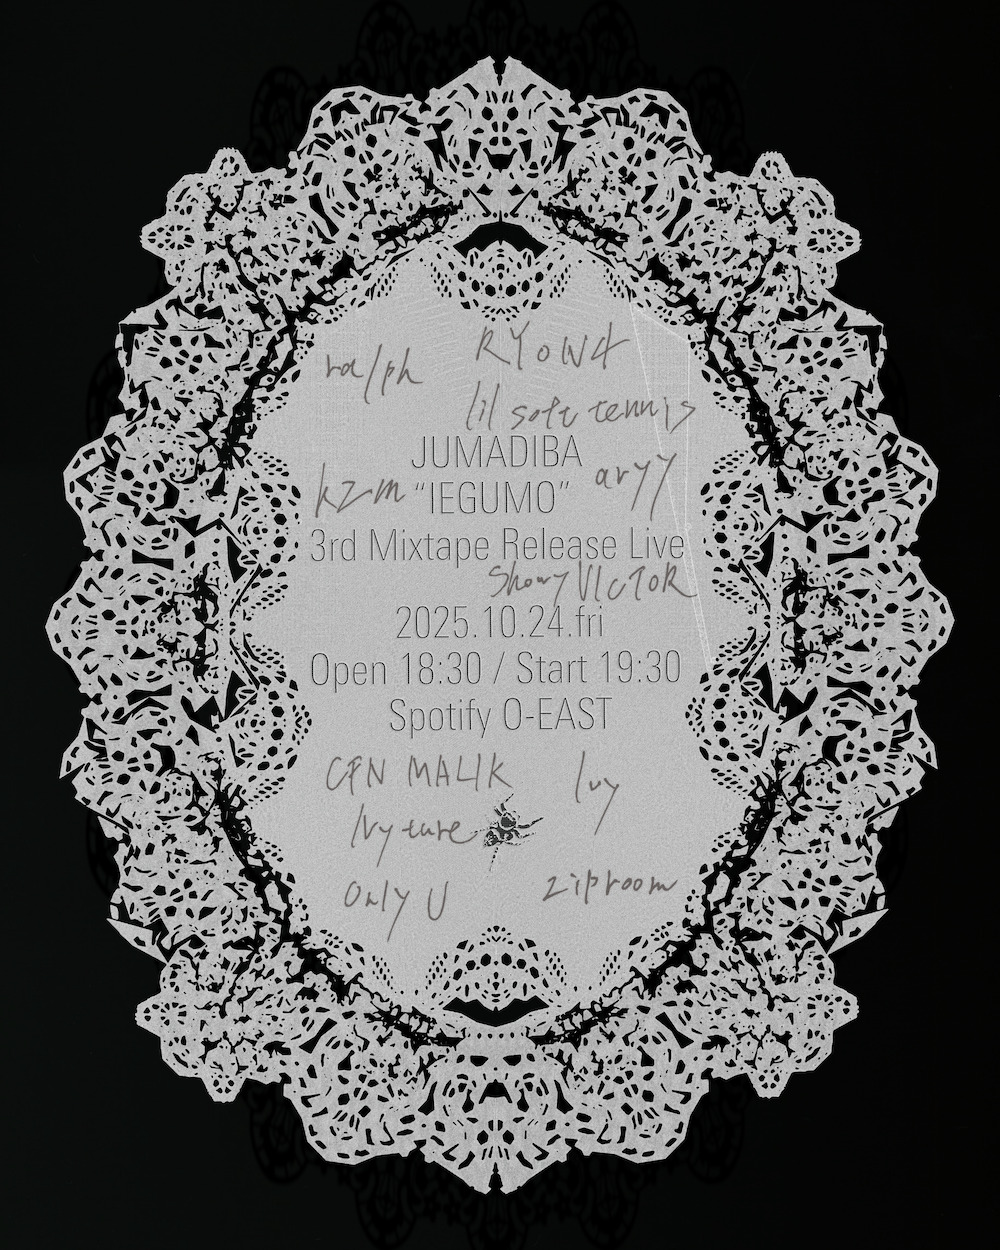 ralph
RYOW4
lil soft tennis
JUMADIBA
kZm “IEGUMO” aryy
3rd Mixtape Release Live
ShowyVICTOR
2025.10.24.fri
Open 18:30 / Start 19:30
Spotify O-EAST
CFN MALIK
Ivy
Ivyture
Only U
ziproom